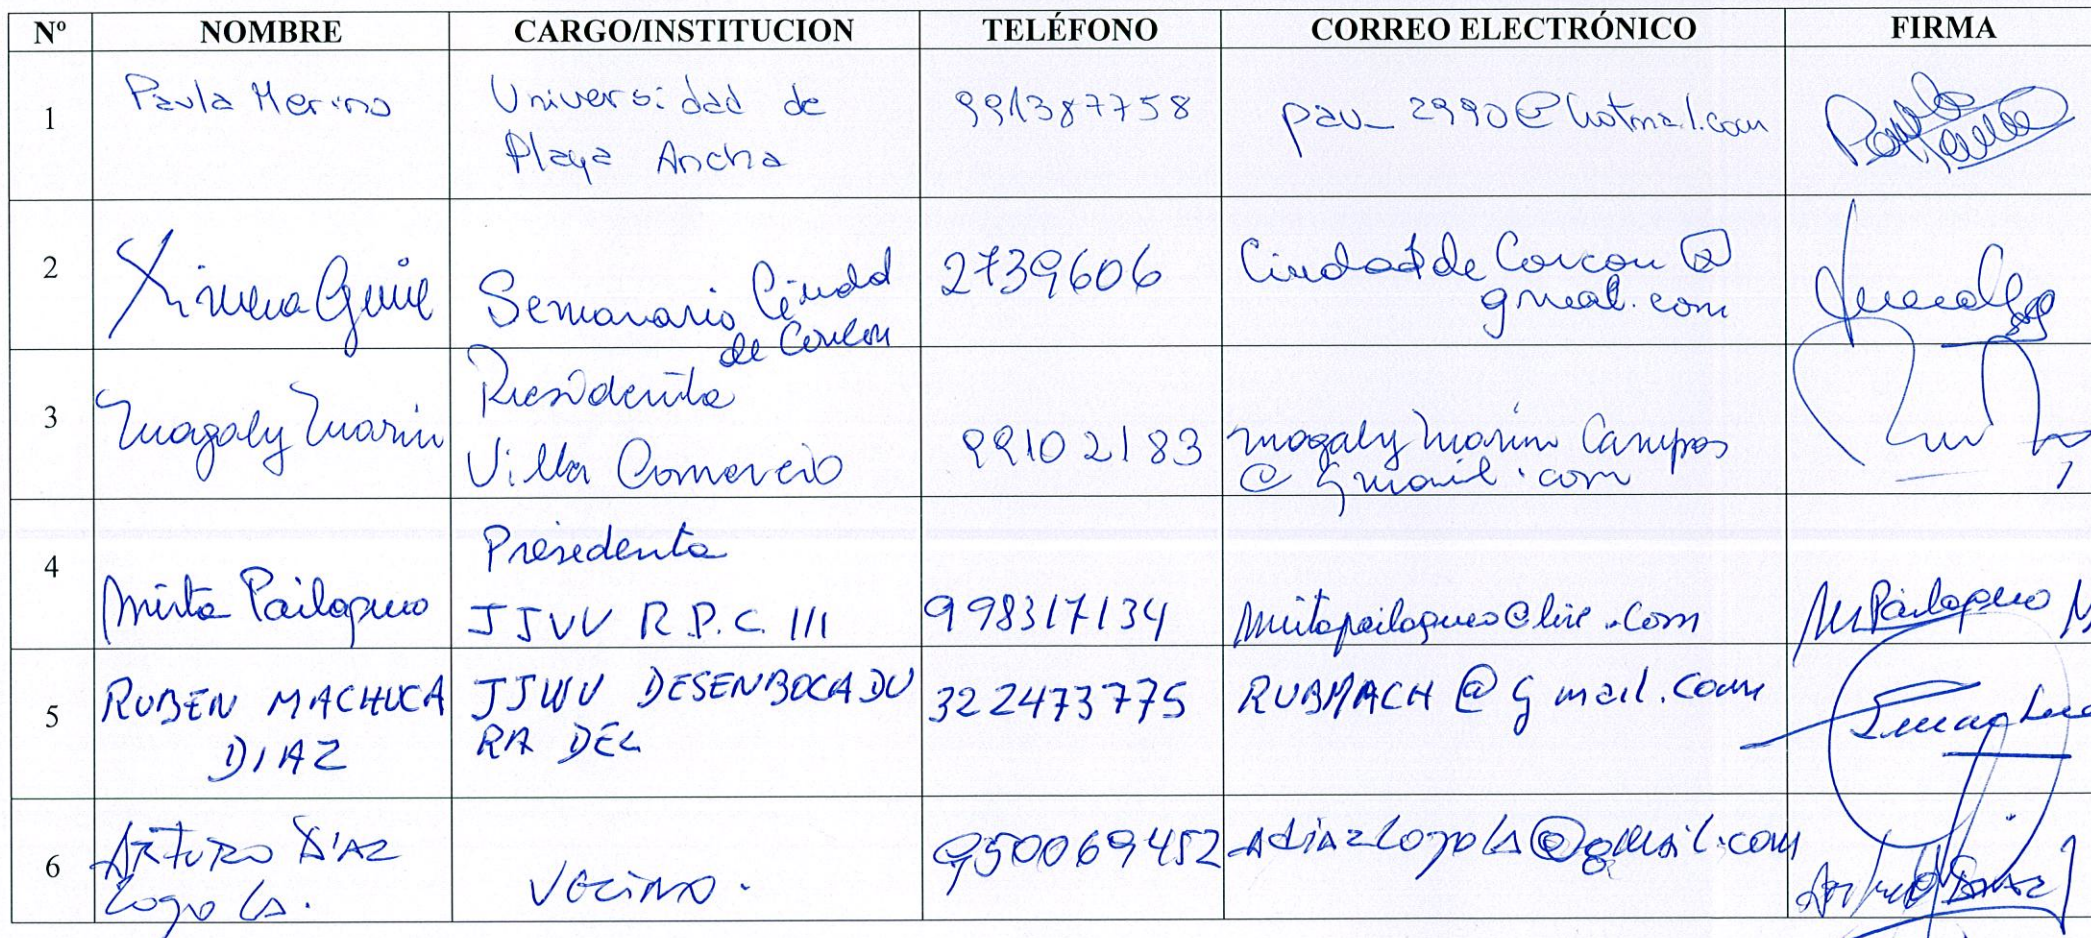 Nº NOMBRE CARGO/INSTITUCION TELÉFONO CORREO ELECTRÓNICO FIRMA
1 Paula Merino Universidad de 991387758 pau_2990@hotmail.com
Playa Ancha
2 Ximena Semanario Ciudad 2739606 Ciudad de Concon @
de Concon gmail.com
3 Magaly Marin Presidenta
Villa Comercio 99102183 magaly marin Campos
@ gmail.com
4 Mirta Pailaqueo Presidenta
JJVV R.P.C. III 998317134 mirtapailaqueo@live.com M Pailaqueo
5 RUBEN MACHUCA JJVV DESENBOCADU 322473775 RUBMACH@gmail.com
DIAZ RA DEL
6 ARTURO DIAZ Vecino. 950069452 adiazloyola@gmail.com Arturo Diaz
Loyola.